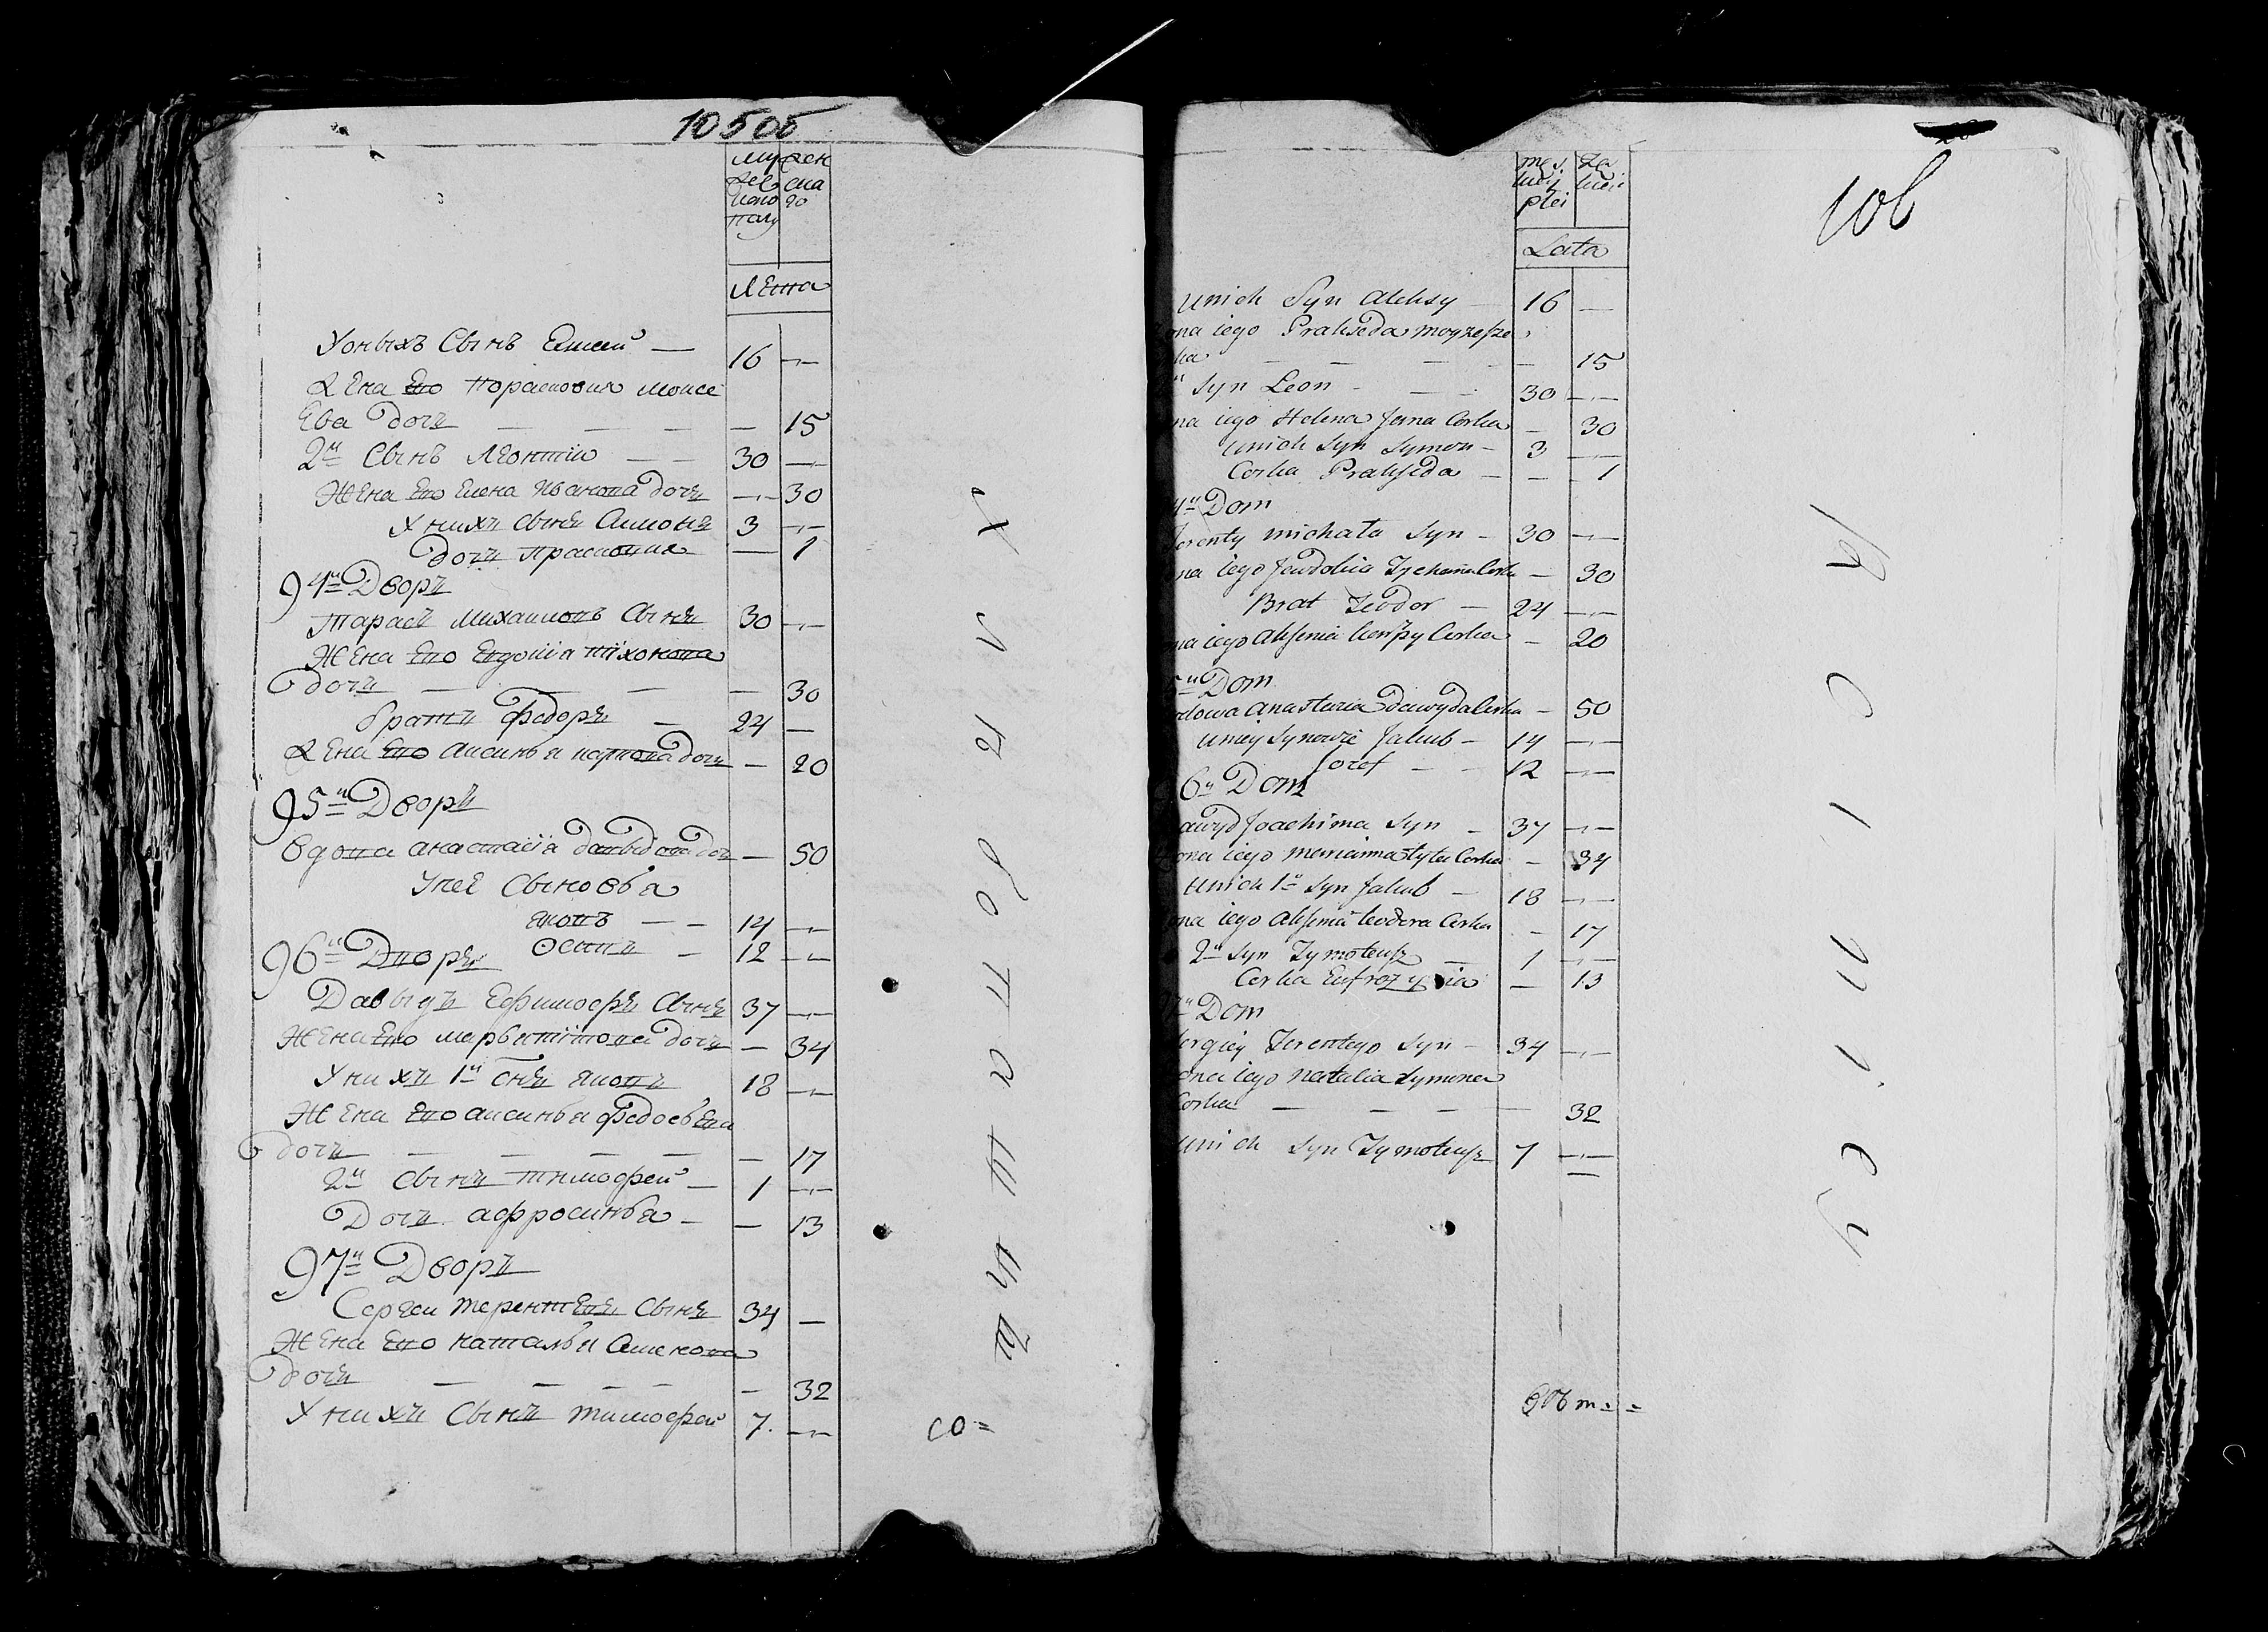 105об
му жен
жес ска
каго го
полу
Лѣта
У оныхъ Сынъ Елисей — 16 —
Жена Его Порасковия Моисе
Ева дочь — — — — 15
2й Сынъ Леонтiи — — 30 —
Жена Его Елена Иванова дочь — 30
У нихъ Сынъ Симонъ 3 —
дочь Прасковия — 1
94й Дворъ
Тарасъ Михаиловъ Сынъ 30 —
Жена Его Евдокiа Тiхонова
дочь — — — — 30
братъ Федоръ — 24 —
Жена Его Аксинья Карпова дочь — 20
95й Дворъ
Вдова Анастасiа Давыдова доч — 50
У неЕ Сыновья
Яковъ — — 14 —
Осипъ — 12 —
96й Дворъ
Давыдъ Ефимофъ Сынъ 37 —
Жена Его Марья Тiтова дочь — 34
У нихъ 1й Снъ Яковъ 18 —
Жена Его Аксинья ФедосьЕва
дочь — — — — — 17
2й Сынъ Тимофей — 1 —
Дочь Афросинья — — 13
97й Дворъ
Сергеи ТерентЕвъ Сынъ 34 —
Жена Его Наталья Симонова
дочь — — — — — 32
У нихъ Сынъ Тимофеи 7 —
со=
106
męs. że
kiej kiei
płci
Lata
u nich Syn Aleksy — 16 —
na iego Prakseda Moyzesze
ka — — — — — 15
Syn Leon — — — 30 —
na iego Helena Jana Corka — 30
u nich Syn Symon — 3 —
Corka Prakseda — — 1
4y Dom
Terenty Michała Syn — 30 —
na iego Jewdokia Tychona Corka — 30
Brat Teodor — 24 —
na iego Aksenia Karpy Corka — 20
5y Dom
dowa Anastazia Dawyda Corka — 50
u niey Synowie Jakub — 14 —
Jozef — — 12 —
6y Dom
awyd Joachima Syn — 37 —
ona iego Marianna Tyta Corka — 34
u nich 1y Syn Jakub — 18 —
na iego Aksenia Teodora Corka — 17
2y Syn Tymoteusz — 1 —
Corka Eufrozynia — 13
7y Dom
ergiey Terentego Syn — 34 —
ona iego Natalia Symona
Corka — — — — — 32
u nich Syn Tymoteusz 7 —